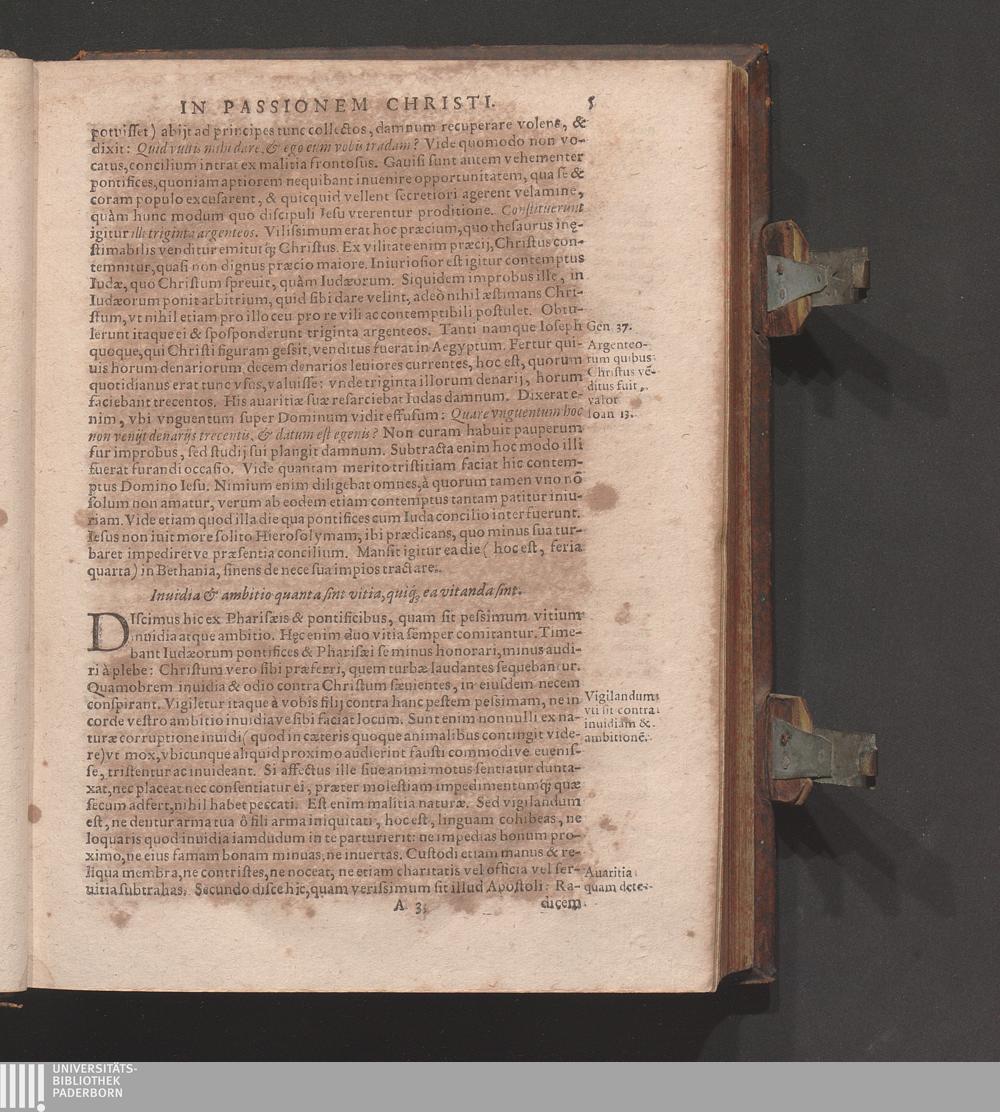 IN PASSIONEM CHRISTI. 5
potuisset) abijt ad principes tunc collectos, damnum recuperare volens, &
dixit: Quid vultis mihi dare, & ego eum vobis tradam? Vide quomodo non vo-
catus, concilium intrat ex malitia frontosus. Gauisi sunt autem vehementer
pontifices, quoniam aptiorem nequibant inuenire opportunitatem, qua se &
coram populo excusarent, & quicquid vellent secretiori agerent velamine,
quàm hunc modum quo discipuli Iesu vterentur proditione. Constituerunt
igitur illi triginta argenteos. Vilissimum erat hoc præcium, quo thesaurus inę-
stimabilis venditur emiturq; Christus. Ex vilitate enim præcij, Christus con-
temnitur, quasi non dignus præcio maiore. Iniuriosior est igitur contemptus
Iudæ, quo Christum spreuit, quàm Iudæorum. Siquidem improbus ille, in
Iudæorum ponit arbitrium, quid sibi dare velint, adeò nihil æstimans Chri-
stum, vt nihil etiam pro illo ceu pro re vili ac contemptibili postulet. Obtu-
lerunt itaque ei & sposponderunt triginta argenteos. Tanti namque Ioseph
quoque, qui Christi figuram gessit, venditus fuerat in Aegyptum. Fertur qui-
uis horum denariorum, decem denarios leuiores currentes, hoc est, quorum
quotidianus erat tunc vsus, valuisse: vnde triginta illorum denarij, horum
faciebant trecentos. His auaritiæ suæ resarciebat Iudas damnum. Dixerat e-
nim, vbi vnguentum super Dominum vidit effusum: Quare vnguentum hoc
non venijt denarijs trecentis, & datum est egenis? Non curam habuit pauperum
fur improbus, sed studij sui plangit damnum. Subtracta enim hoc modo illi
fuerat furandi occasio. Vide quantam merito tristitiam faciat hic contem-
ptus Domino Iesu. Nimium enim diligebat omnes, à quorum tamen vno nõ
solum non amatur, verum ab eodem etiam contemptus tantam patitur iniu-
riam. Vide etiam quod illa die qua pontifices cum Iuda concilio interfuerunt.
Iesus non iuit more solito Hierosolymam, ibi prædicans, quo minus sua tur-
baret impediretve præsentia concilium. Mansit igitur ea die (hoc est, feria
quarta) in Bethania, sinens de nece sua impios tractare.
Gen 37.
Argenteo-
rum quibus
Christus vē-
ditus fuit,
valor
Ioan 13.
Inuidia & ambitio quanta sint vitia, quiq; ea vitanda sint.
DIscimus hic ex Pharisæis & pontificibus, quam sit pessimum vitium
inuidia atque ambitio. Hęc enim duo vitia semper comitantur. Time-
bant Iudæorum pontifices & Pharisæi se minus honorari, minus audi-
ri à plebe: Christum vero sibi præferri, quem turbæ laudantes sequebantur.
Quamobrem inuidia & odio contra Christum sæuientes, in eiusdem necem
conspirant. Vigiletur itaque à vobis filij contra hanc pestem pessimam, ne in
corde vestro ambitio inuidiave sibi faciat locum. Sunt enim nonnulli ex na-
turæ corruptione inuidi (quod in cæteris quoque animalibus contingit vide-
re) vt mox, vbicunque aliquid proximo audierint fausti commodive euenis-
se, tristentur ac inuideant. Si affectus ille siue animi motus sentiatur dunta-
xat, nec placeat nec consentiatur ei, præter molestiam impedimentumq; quæ
secum adfert, nihil habet peccati. Est enim malitia naturæ. Sed vigilandum
est, ne dentur arma tua ô fili arma iniquitati, hoc est, linguam cohibeas, ne
loquaris quod inuidia iamdudum in te parturierit: ne impedias bonum pro-
ximo, ne eius famam bonam minuas, ne inuertas. Custodi etiam manus & re-
liqua membra, ne contristes, ne noceat, ne etiam charitatis vel officia vel ser-
uitia subtrahas. Secundo disce hic, quam verissimum sit illud Apostoli: Ra-
Vigilandum
vti sit contra
inuidiam &
ambitionē.
Auaritia
quam dete-
A 3 dicem
UNIVERSITÄTS-
BIBLIOTHEK
PADERBORN